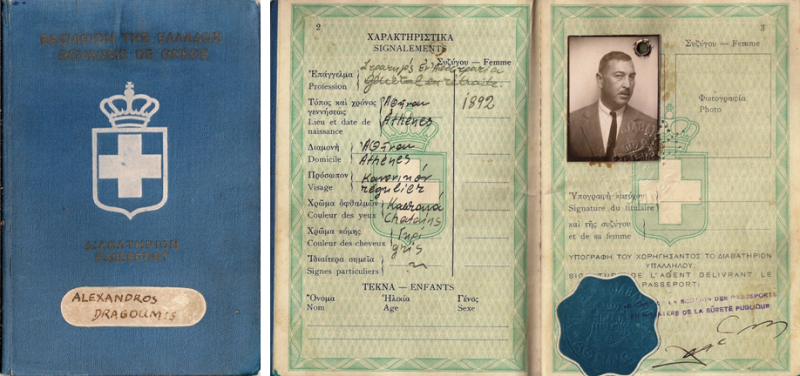 ΒΑΣΙΛΕΙΟΝ ΤΗΣ ΕΛΛΑΔΟΣ
ROYAUME DE GRÈCE
ΔΙΑΒΑΤΗΡΙΟΝ
PASSEPORT
ALEXANDROS
DRAGOUMIS
2
ΧΑΡΑΚΤΗΡΙΣΤΙΚΑ
SIGNALEMENTS
Συζύγου — Femme
Ἐπάγγελμα
Profession
Général en retraite
Τόπος καὶ χρόνος
γεννήσεως
Lieu et date de
naissance
Ἀθῆναι 1892
Athènes
Διαμονὴ
Domicile
Ἀθῆναι
Athènes
Πρόσωπον
Visage
Κανονικόν
régulier
Χρῶμα ὀφθαλμῶν
Couleur des yeux
Καστανά
Chatains
Χρῶμα κόμης
Couleur des cheveux
gris
Ἰδιαίτερα σημεῖα
Signes particuliers
ΤΕΚΝΑ — ENFANTS
Ὄνομα Ἡλικία Γένος
Nom Age Sexe
3
Συζύγου — Femme
Φωτογραφία
Photo
Ὑπογραφὴ κατόχου
Signature du titulaire
καὶ τῆς συζύγου
et de sa femme
ΥΠΟΓΡΑΦΗ ΤΟΥ ΧΟΡΗΓΗΣΑΝΤΟΣ ΤΟ ΔΙΑΒΑΤΗΡΙΟΝ
ΥΠΑΛΛΗΛΟΥ
L'AGENT DELIVRANT LE
PASSEPORT:
DES PASSEPORTS
DE LA SÛRETÉ PUBLIQUE